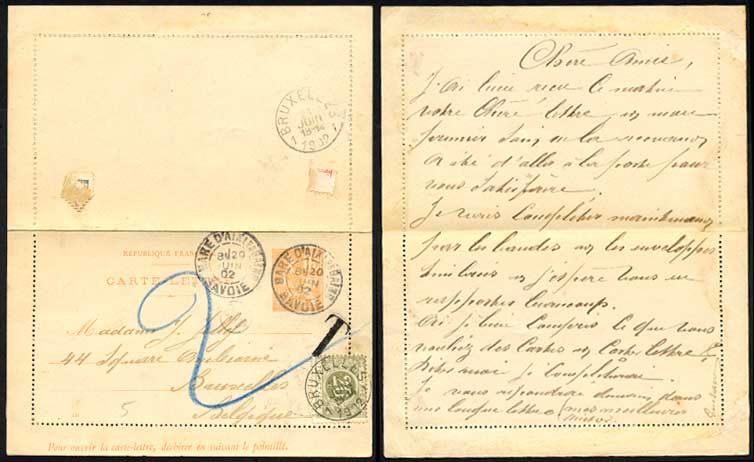 BRUXELLES
JUIN
1902
RÉPUBLIQUE FRAN
CARTE-LE
GARE D'AIX-LES-BAINS
8 20
JUIN
02
SAVOIE
GARE D'AIX-LES-BAINS
8 20
JUIN
02
SAVOIE
2
T
Madame J.
44 Square
Bruxelles
Belgique
5
BRUXELLES
1902
Pour ouvrir la carte-lettre, déchirer en suivant le pointillé.
Chère Amie,
J'ai bien reçu ce matin
votre chère lettre et mon
premier soin en la recevant
a été d'aller à la poste pour
vous satisfaire.
Je vais compléter maintenant
pour les bandes et les enveloppes
et j'espère vous en
rapporter beaucoup.
Ai je bien compris ce que vous
vouliez des Cartes et Cartes lettres ?
Dites moi je compléterai.
Je vous répondrai demain dans
une longue lettre. mes meilleures